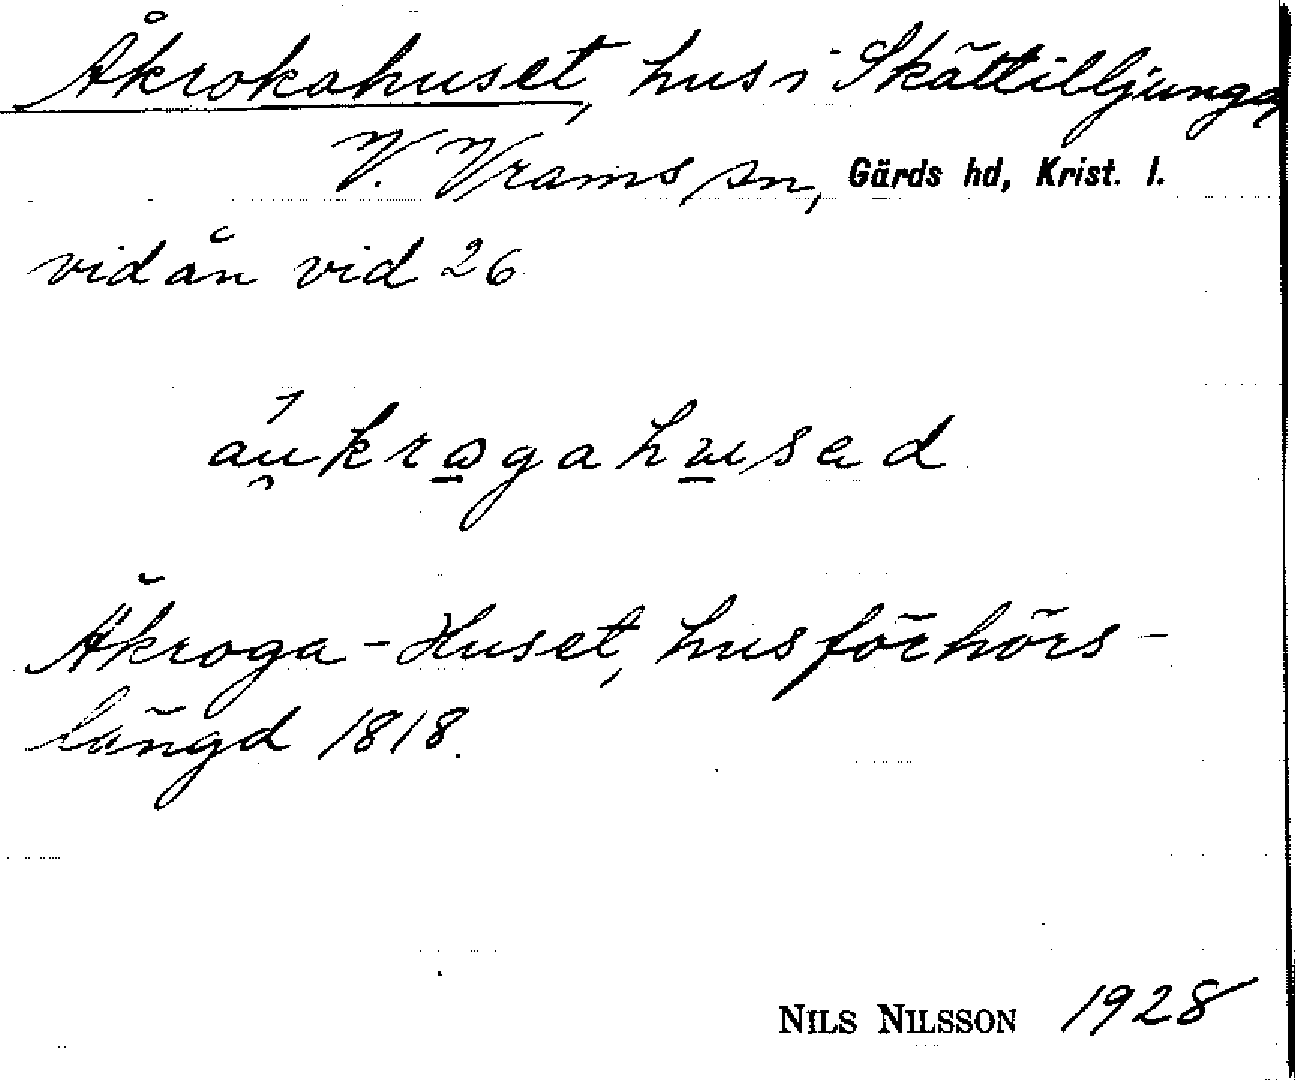 Åkrokahuset, hus i Skättilljunga,
V. Vrams sn, Gärds hd, Krist. l.
vid ån vid 26
áu̯krogahusad
Åkroga-Huset, husförhörs-
längd 1818.
NILS NILSSON 1928